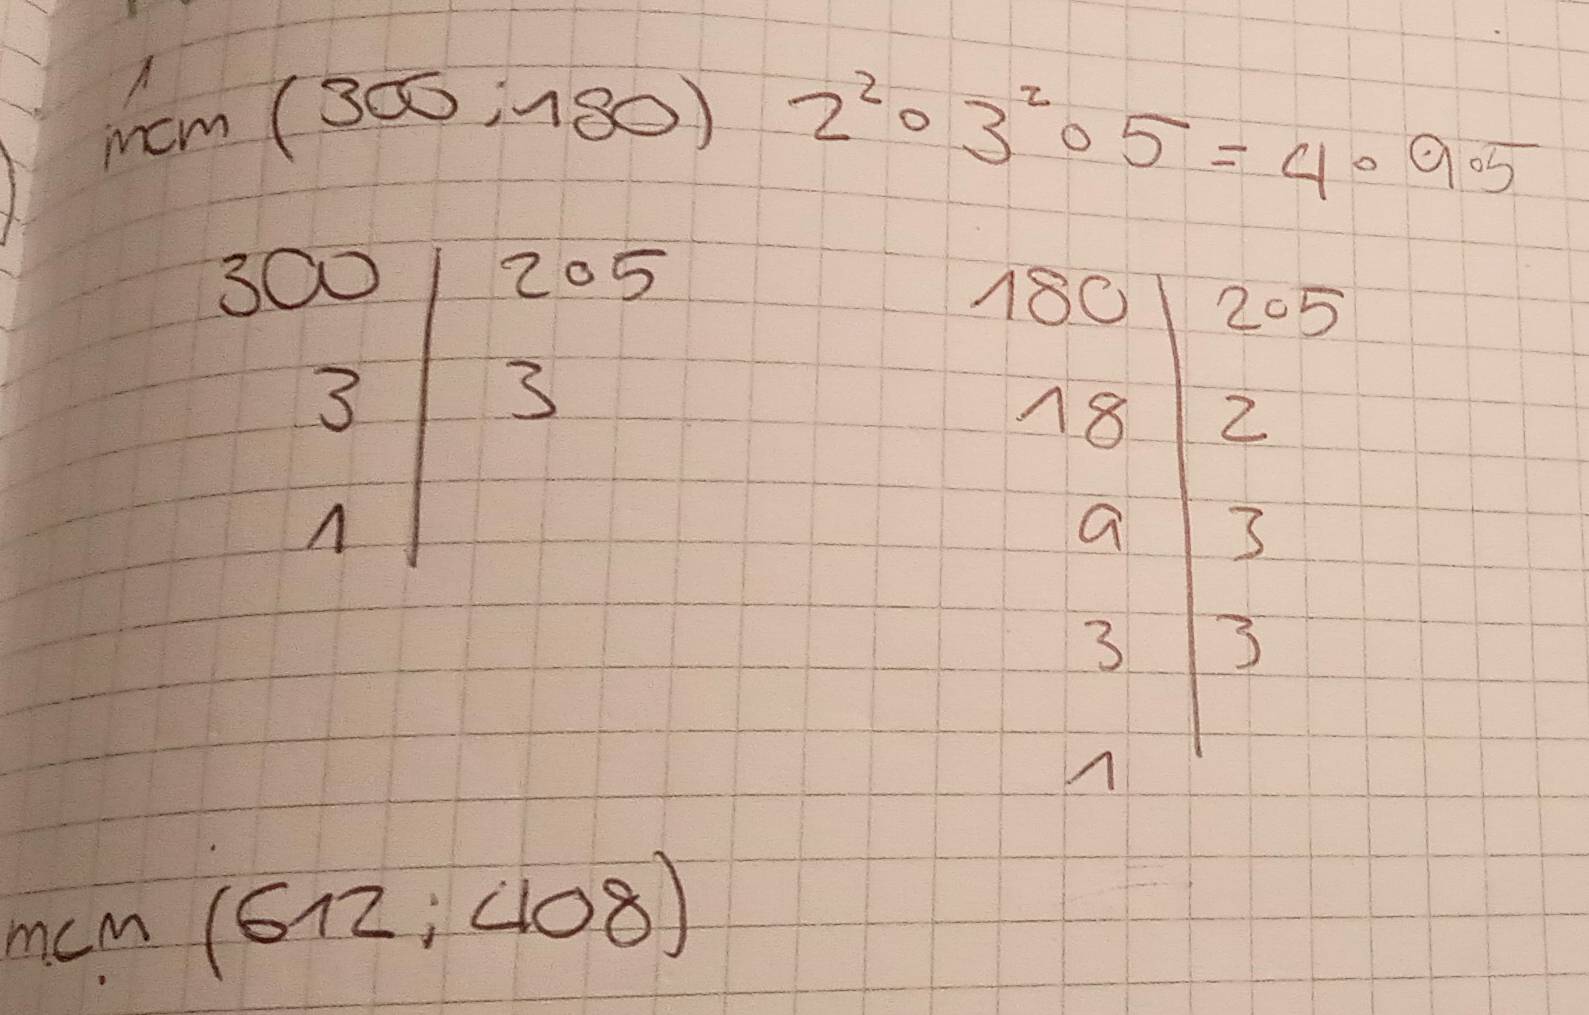 1
mcm (300;180) 2²∘3²∘5=4∘9∘5
300 | 2∘5 180 | 2∘5
3 | 3 18 | 2
1 | 9 | 3
3 | 3
1
mcm (612;408)